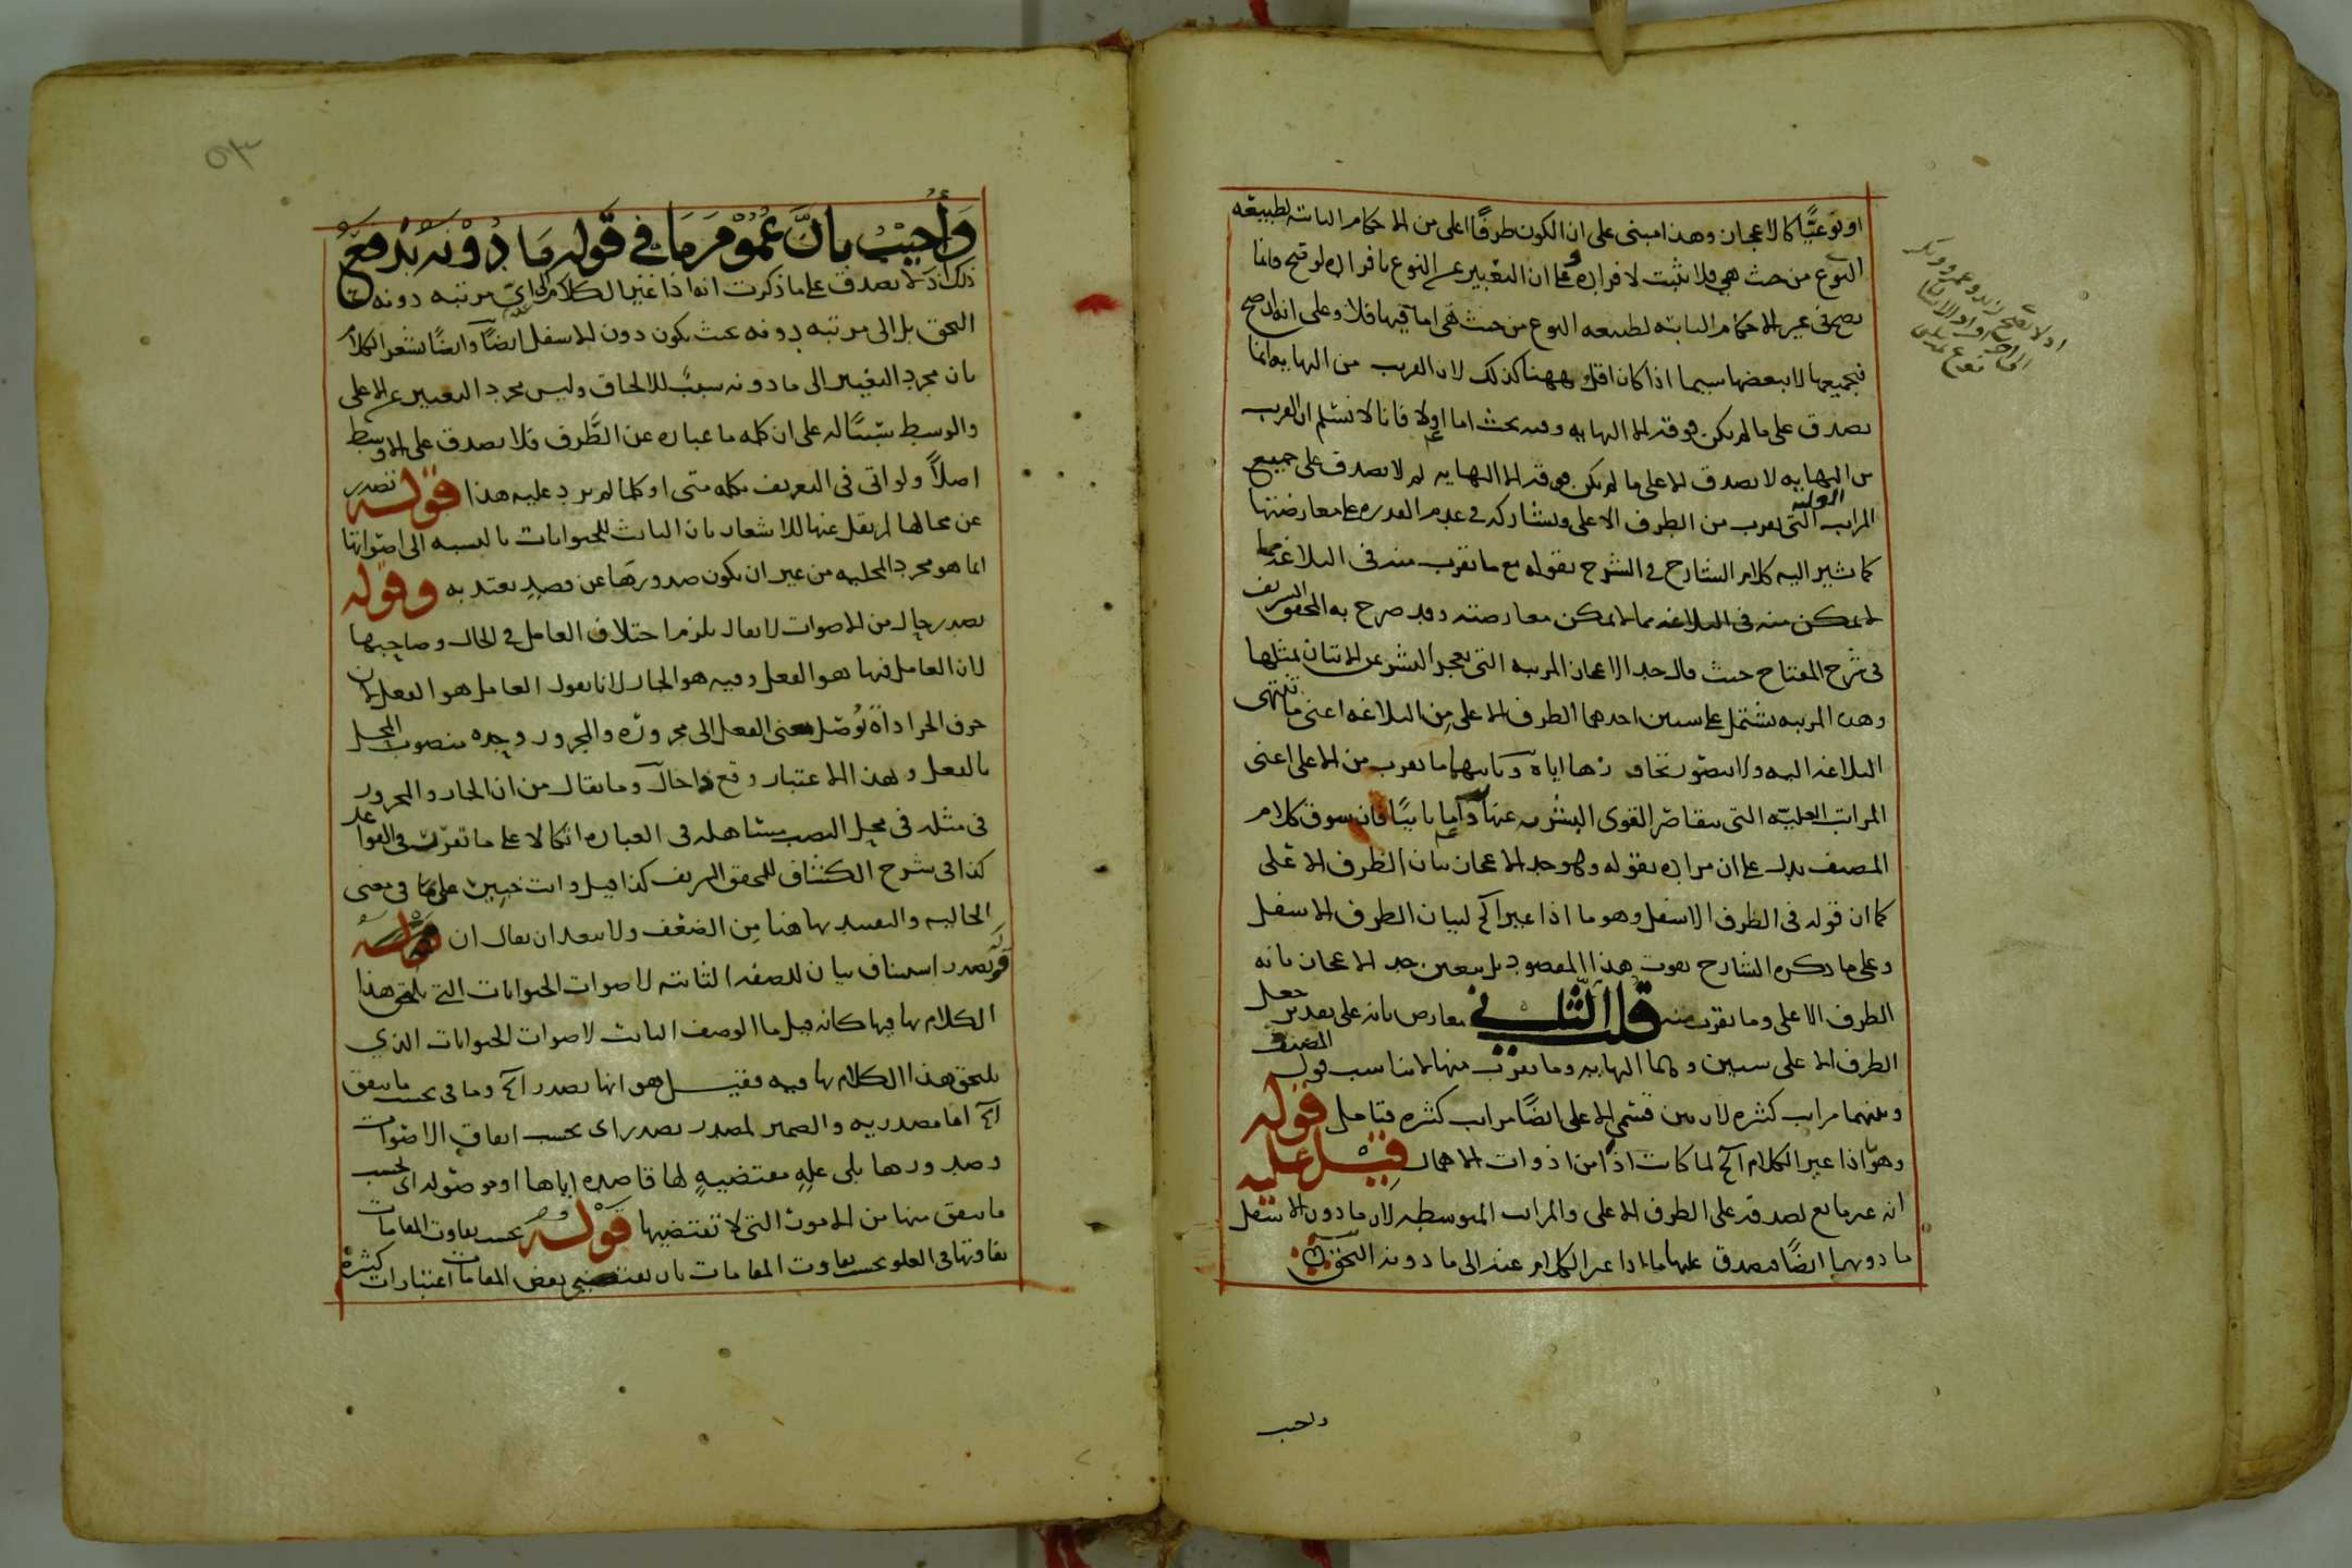 او نوعيًّا كالاعجاز وهذا مبنى على ان الكون طرفًا اعلى من الاحكام الثابتة لطبيعة
النوع من حيث هي فلا يثبت لافراده وعلى ان التعبير عن النوع بافراده لو صح فانما
يصح فى غير الاحكام الثابته لطبيعه النوع من حيث هى اما فيها فلا وعلى انه ان صح
فبجميعها لا ببعضها سيما اذا كان اقل وههنا كذلك لان القريب من النهايه انما
يصدق على ما لم يكن فوقه الا النهايه وفيه بحث اما اولا فانا لا نسلم ان القريب
من النهايه لا يصدق الا على ما لم يكن فوقه الا النهايه لم لا يصدق على جميع
المراتب العليه التى تقرب من الطرف الاعلى وتشاركه فى عدم القدره على معارضتها
كما يشير اليه كلام الشارح فى الشرح بقوله مع ما تقرب منه فى البلاغه مما
لا يمكن معارضته وقد صرح به المحقق الشريف
فى شرح المفتاح حيث قال حد الاعجاز المرتبه التى يعجز البشر عن الاتيان بمثلها
وهذه المرتبه تشتمل على شيئين احدهما الطرف الاعلى من البلاغه اعنى ما تنتهى
البلاغه اليه ولا يتصور تجاوزها اياه وثانيهما ما تقرب من الاعلى اعنى
المراتب العليّه التى تتقاصر القوى البشريه عنها واما ثانيًا فان سوق كلام
المصنف يدل على ان مراده بقوله وهو حد الاعجاز بيان الطرف الاعلى
كما ان قوله فى الطرف الاسفل وهو ما اذا غير الخ لبيان الطرف الاسفل
وعلى ما ذكره الشارح يفوت هذا المقصود بل يتعين حد الاعجاز بانه
الطرف الاعلى وما يقرب منه قلت الثانى معارض بانه على تقدير جعل
الطرف الاعلى شيئين وهما النهايه وما تقرب منها لا يناسب قول المصنف
وبينهما مراتب كثيره لان بين قسمى الاعلى ايضًا مراتب كثيره فتامل قوله
وهو اذا غير الكلام الخ لما كانت اذا من اذوات الاهمال قيل عليه
انه غير مانع لصدقه على الطرف الاعلى والمراتب المتوسطه لان ما دون الاسفل
ما دونهما ايضًا فيصدق عليهما ما اذا غير الكلام عنه الى ما دونه التحق
واجيب
وَأُجيْبَ بانَّ عُمُوْمَ مَا في قَوله مَا دُوْنَهُ يَدفَعُ
ذلك اذ لا يصدق على ما ذكرت انه اذا غير الكلام الى اىّ مرتبه دونه
التحق بل الى مرتبه دونه بحيث يكون دون الاسفل ايضًا وايضًا يشعر الكلام
بان مجرد التغيير الى ما دونه سببٌ للالحاق وليس مجرد التغيير عن الاعلى
والوسط سببًا له على ان كلمه ما عباره عن الطَّرف فلا يصدق على الاوسط
اصلاً ولو اتى فى التعريف بكلمه متى او كلما لم يرد عليه هذا قوله تصدر
عن محالها لم يقل عنها للاشعار بان الثابت للحيوانات بالنسبه الى اصواتها
انما هو مجرد المحليه من غير ان يكون صدورها عن قصد يعتد به وقوله
تصدر حال من الاصوات لا يقال يلزم اختلاف العامل فى الحال وصاحبها
لان العامل فيها هو الفعل وفيه هو الجار لانا نقول العامل هو الفعل لان
حرف الجر اداة تُوصّل معنى الفعل الى مجروره والمجرور وحده منصوب المحل
بالفعل وبهذا الاعتبار وقع ذا حال وما يقال من ان الجار والمجرور
فى مثله فى محل النصب مساهله فى العباره اتكالا على ما تقرّر فى القواعد
كذا فى شرح الكشاف للمحقق الشريف كذا قيل وانت خبير على ما فى معنى
الحاليه والتقييد بها هنا مِن الضعْف ولا يبعد ان يقال ان قوله
تصدر استيناف بيان للصفه الثابته لاصوات الحيوانات التى يلتحق هذا
الكلام بها فيها كانه قيل ما الوصف الثابت لاصوات الحيوانات الذي
يلتحق هذا الكلام بها فيه فقيل هو انها تصدر الخ وما فى بحسب ما يتفق
الخ اما مصدريه والضمير لمصدر تصدر اى بحسب اتفاق الاصوات
وصدورها بلى علةٍ مقتضيةٍ لها قاصده اياها او موصوله اى بحسب
ما يتفق منها من الامور التى لا تقتضيها قوله بحسب تفاوت المقامات
تفاوتها فى العلو بحسب تفاوت المقامات بان يقتضى بعض المقامات اعتبارات كثيرة